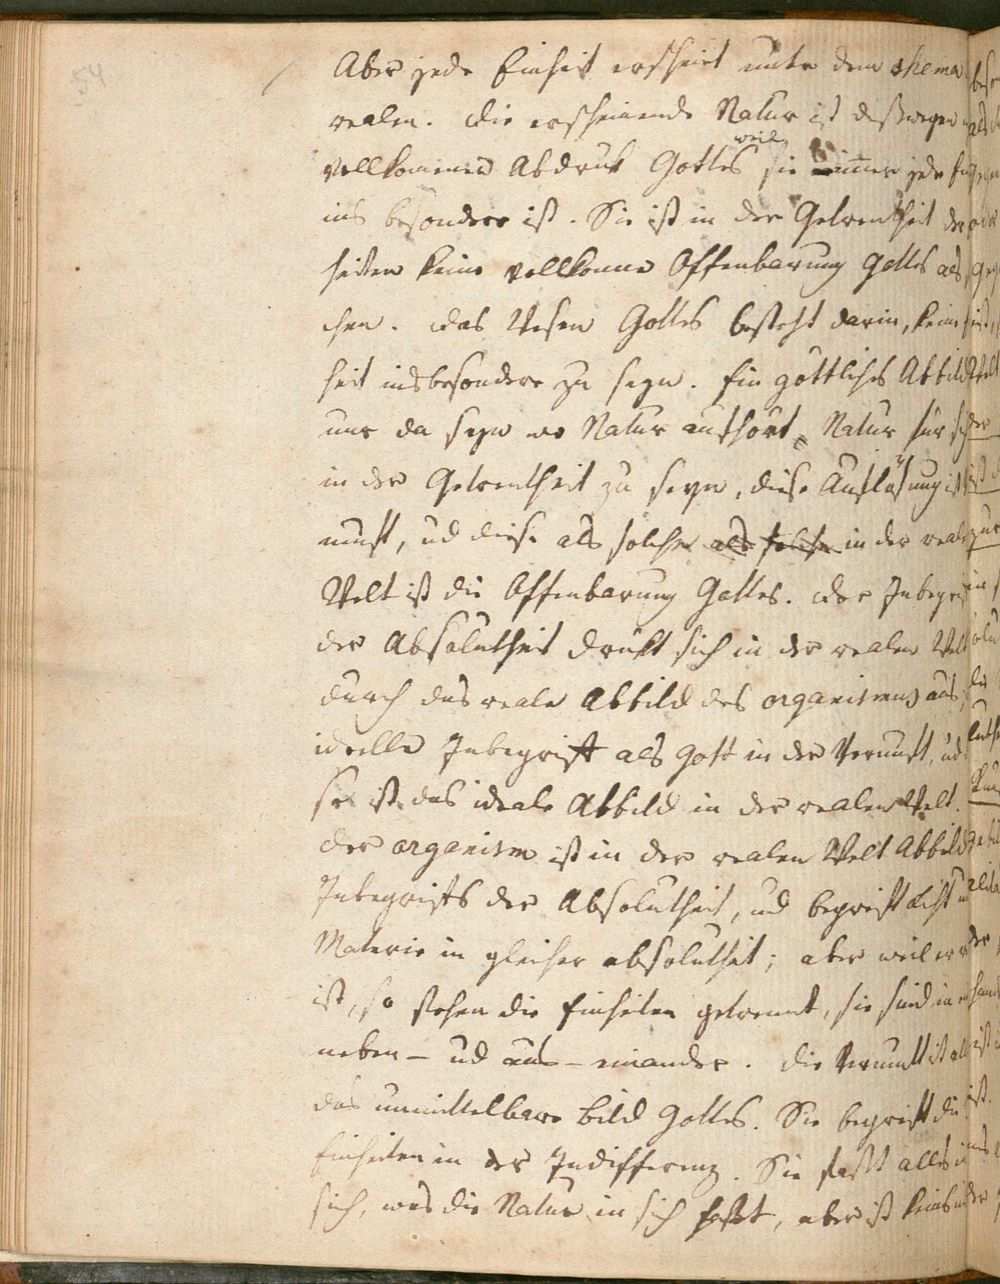 54
Aber jede Einheit erscheint unter dem schema
realen. Die erscheinende Natur ist deßwegen
vollkomener Abdruk Gottes weil sie immer jede
ins besondere ist. Sie ist in der Getrentheit der
heiten keine vollkomne Offenbarung Gottes als
chen. Das Wesen Gottes besteht darin, keine
heit insbesondere zu seyn. Ein göttliches Abbild
nur da seyn wo Natur aufhört, Natur für sich
in der Getrentheit zu seyn, diese Auflösung ist
nunft, ud diese als solche als solche in der reale
Welt ist die Offenbarung Gottes. Der Inbegrif
der Absolutheit drükt sich in der realen Welt
durch das reale Abbild des organismus aus,
ideelle Inbegriff als Gott in der Vernunft, ud
sie ist das ideale Abbild in der realen Welt.
der organism ist in der realen Welt Abbild
Inbegriffs der Absolutheit, ud begreift Licht u
Materie in gleicher absolutheit; aber weil er
ist, so stehen die Einheiten getrennt, sie sind in
neben – ud aus – einander. Die Vernunft ist al
das unmittelbare Bild Gottes. Sie begreift die
Einheiten in der Indifferenz. Sie faßt alles in
sich, was die Natur in sich faßt, aber ist keins